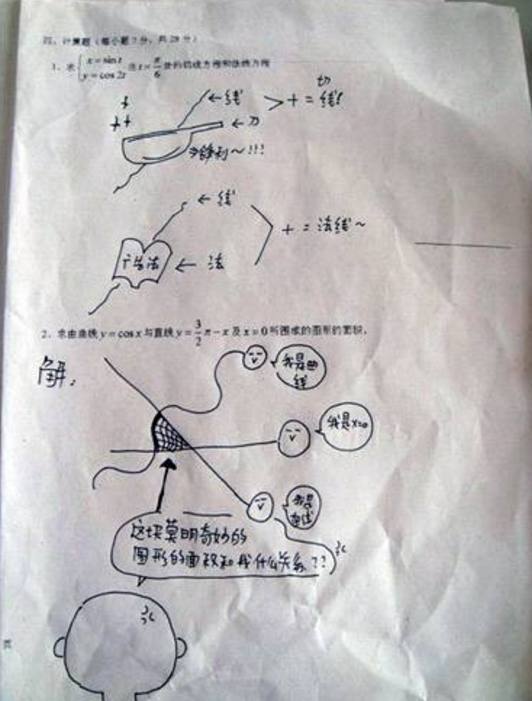 四、计算题（每小题7分，共28分）
1、求{x=sint y=cos2t 在t=π/6 处的切线方程和法线方程
←线
← 刀
锋利～!!!
+ = 切线!
← 线
← 法
+ = 法线～
2、求由曲线y=cosx与直线y=3/2π-x及x=0所围成的图形的面积。
解:
我是曲线
我是x=0
我是直线
这块莫明奇妙的
图形的面积和我什么关系??